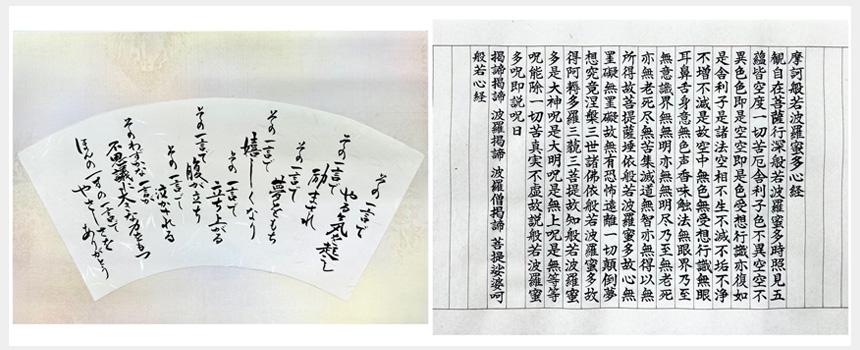 その一言で
やる気を起し
その一言で
励まされ
その一言で
夢をもち
その一言で
嬉しくなり
その一言で
立ち上る
その一言で
腹が立ち
その一言で
泣かされる
そのわずかな一言が
不思議に大きな力をもつ
ほんの一寸の一言で
ありがとう
摩訶般若波羅蜜多心経
観自在菩薩行深般若波羅蜜多時照見五
蘊皆空度一切苦厄舎利子色不異空空不
異色色即是空空即是色受想行識亦復如
是舎利子是諸法空相不生不滅不垢不浄
不増不減是故空中無色無受想行識無眼
耳鼻舌身意無色声香味触法無眼界乃至
無意識界無無明亦無無明尽乃至無老死
亦無老死尽無苦集滅道無智亦無得以無
所得故菩提薩埵依般若波羅蜜多故心無
罣礙無罣礙故無有恐怖遠離一切顛倒夢
想究竟涅槃三世諸佛依般若波羅蜜多故
得阿耨多羅三藐三菩提故知般若波羅蜜
多是大神呪是大明呪是無上呪是無等等
呪能除一切苦真実不虚故説般若波羅蜜
多呪即説呪曰
揭諦揭諦 波羅揭諦 波羅僧揭諦 菩提娑婆呵
般若心経